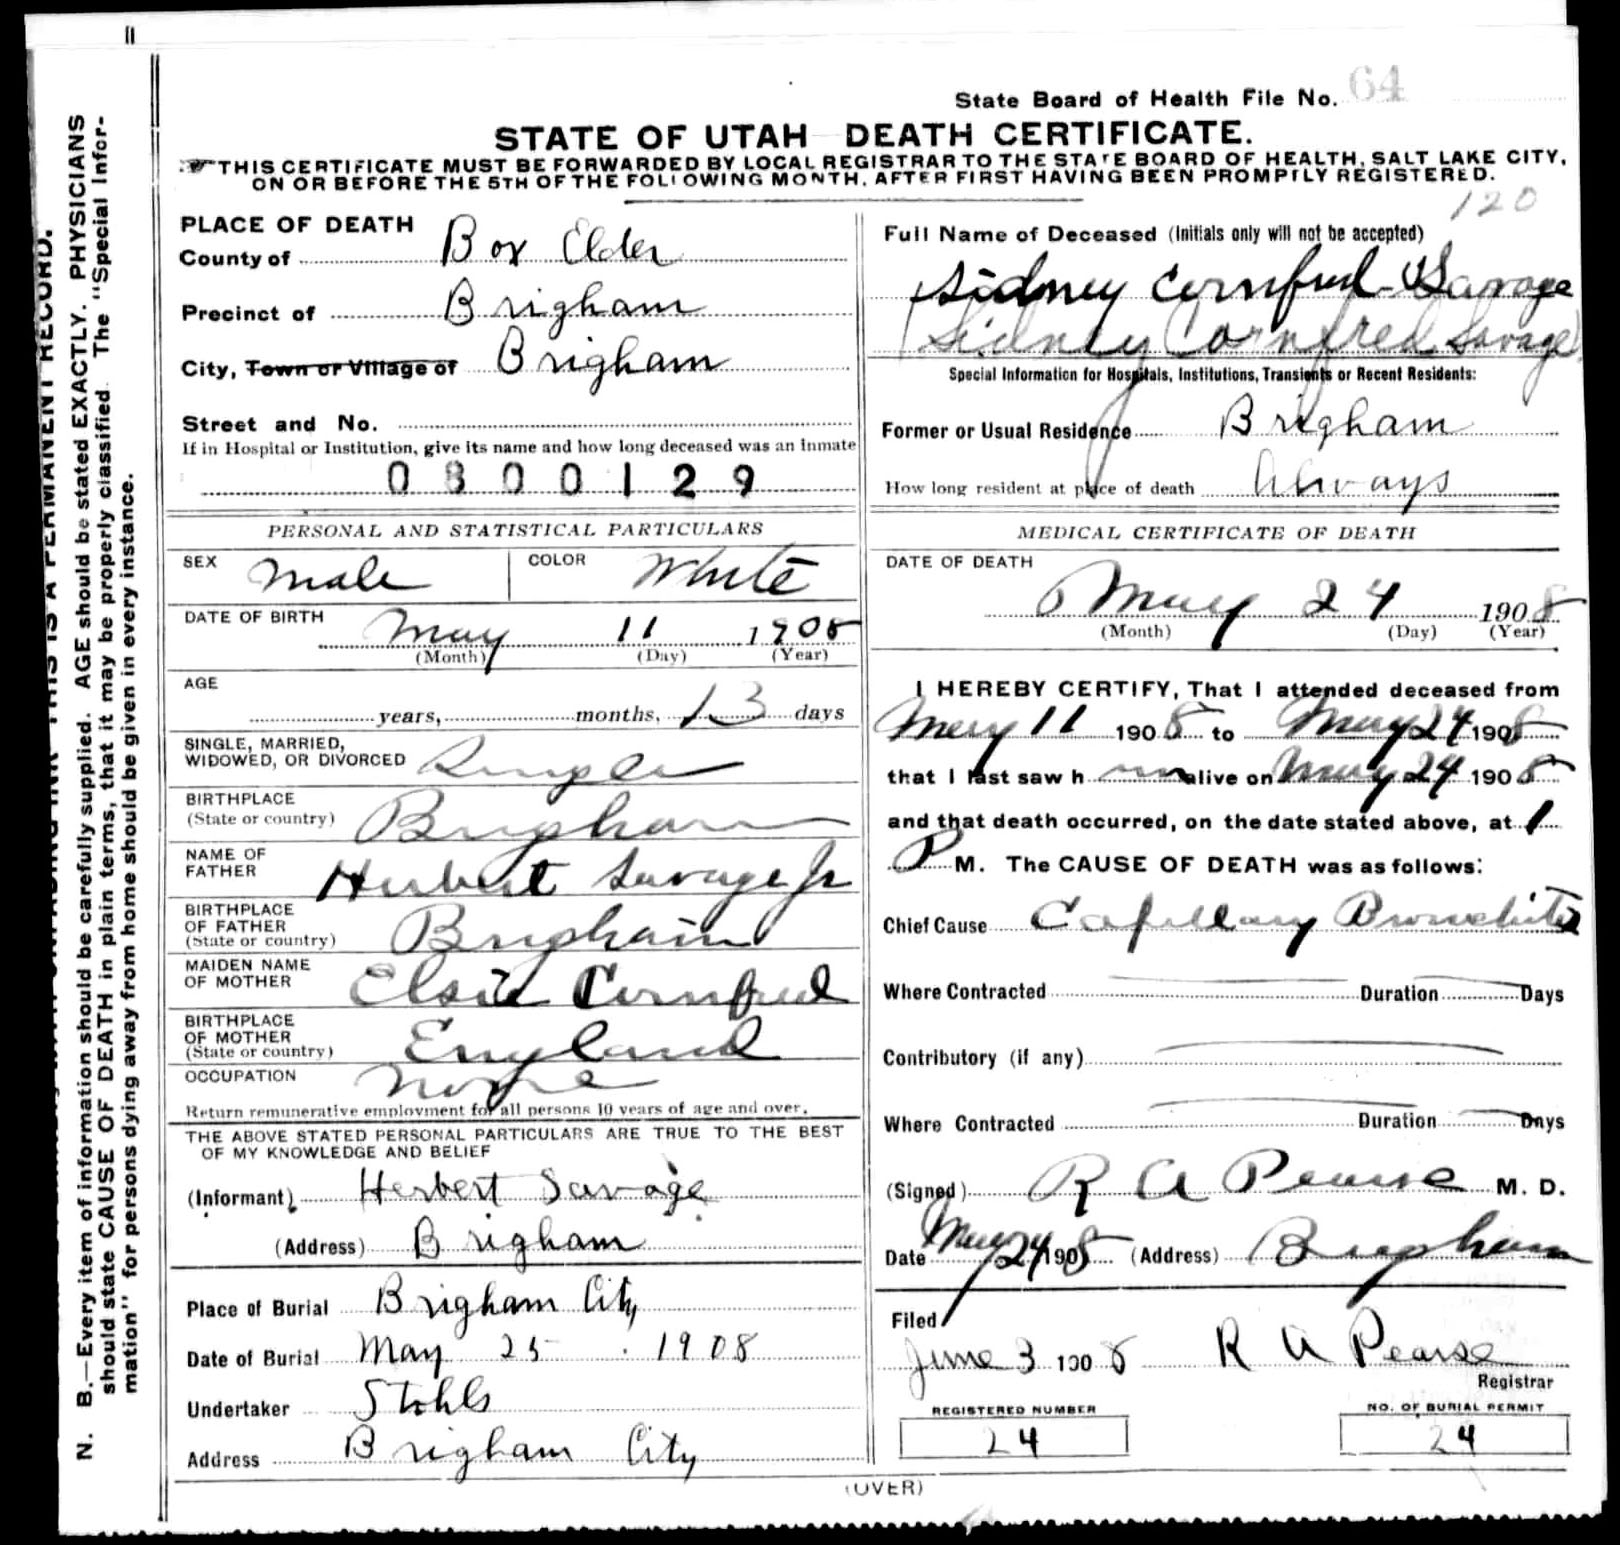 State Board of Health File No. 64
STATE OF UTAH DEATH CERTIFICATE.
THIS CERTIFICATE MUST BE FORWARDED BY LOCAL REGISTRAR TO THE STATE BOARD OF HEALTH, SALT LAKE CITY,
ON OR BEFORE THE 5TH OF THE FOLLOWING MONTH, AFTER FIRST HAVING BEEN PROMPTLY REGISTERED.
120
PLACE OF DEATH
County of Box Elder
Precinct of Brigham
City, Town or Village of Brigham
Street and No.
If in Hospital or Institution, give its name and how long deceased was an inmate
0800129
PERSONAL AND STATISTICAL PARTICULARS
SEX Male COLOR White
DATE OF BIRTH May 11 1908
(Month) (Day) (Year)
AGE
years, months, 13 days
SINGLE, MARRIED,
WIDOWED, OR DIVORCED Single
BIRTHPLACE
(State or country) Brigham
NAME OF
FATHER Herbert Savage Jr
BIRTHPLACE
OF FATHER
(State or country) Brigham
MAIDEN NAME
OF MOTHER Elsie Cornfred
BIRTHPLACE
OF MOTHER
(State or country) England
OCCUPATION None
Return remunerative employment for all persons 10 years of age and over.
THE ABOVE STATED PERSONAL PARTICULARS ARE TRUE TO THE BEST
OF MY KNOWLEDGE AND BELIEF
(Informant) Herbert Savage
(Address) Brigham
Place of Burial Brigham City
Date of Burial May 25 1908
Undertaker Stohls
Address Brigham City
Full Name of Deceased (Initials only will not be accepted)
Sidney Cornfred Savage
(Sidney Cornfred Savage)
Special Information for Hospitals, Institutions, Transients or Recent Residents:
Former or Usual Residence Brigham
How long resident at place of death Always
MEDICAL CERTIFICATE OF DEATH
DATE OF DEATH
May 24 1908
(Month) (Day) (Year)
I HEREBY CERTIFY, That I attended deceased from
May 11 1908 to May 24 1908
that I last saw h im alive on May 24 1908
and that death occurred, on the date stated above, at 1
P M. The CAUSE OF DEATH was as follows:
Chief Cause Capillary Bronchitis
Where Contracted Duration Days
Contributory (if any)
Where Contracted Duration Days
(Signed) R A Pearse M. D.
Date May 24 1908 (Address) Brigham
Filed
June 3 1908 R A Pearse
Registrar
REGISTERED NUMBER NO. OF BURIAL PERMIT
24 24
(OVER)
N. B.—Every item of information should be carefully supplied. AGE should be stated EXACTLY. PHYSICIANS
should state CAUSE OF DEATH in plain terms, that it may be properly classified. The "Special Infor-
mation" for persons dying away from home should be given in every instance.
THIS IS A PERMANENT RECORD.